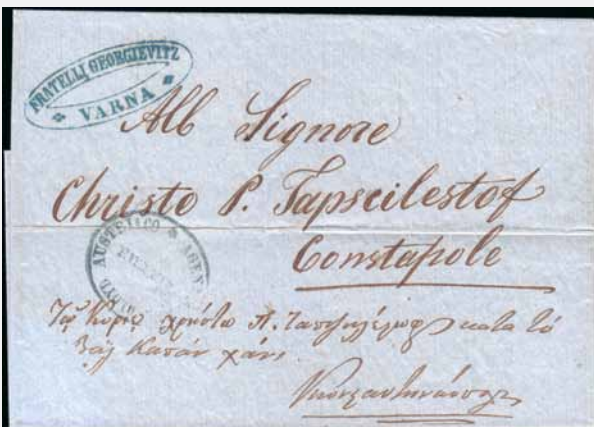 FRATELLI GEORGIEVITZ
VARNA
All Signore
Christo P. Tapscilestof
Constapole
LLOYD AUSTRIACO AGEN
Τῷ Κυρίῳ χρήστω Π. κατα τὸ
χάνι
Κωνσταντινούπολιν